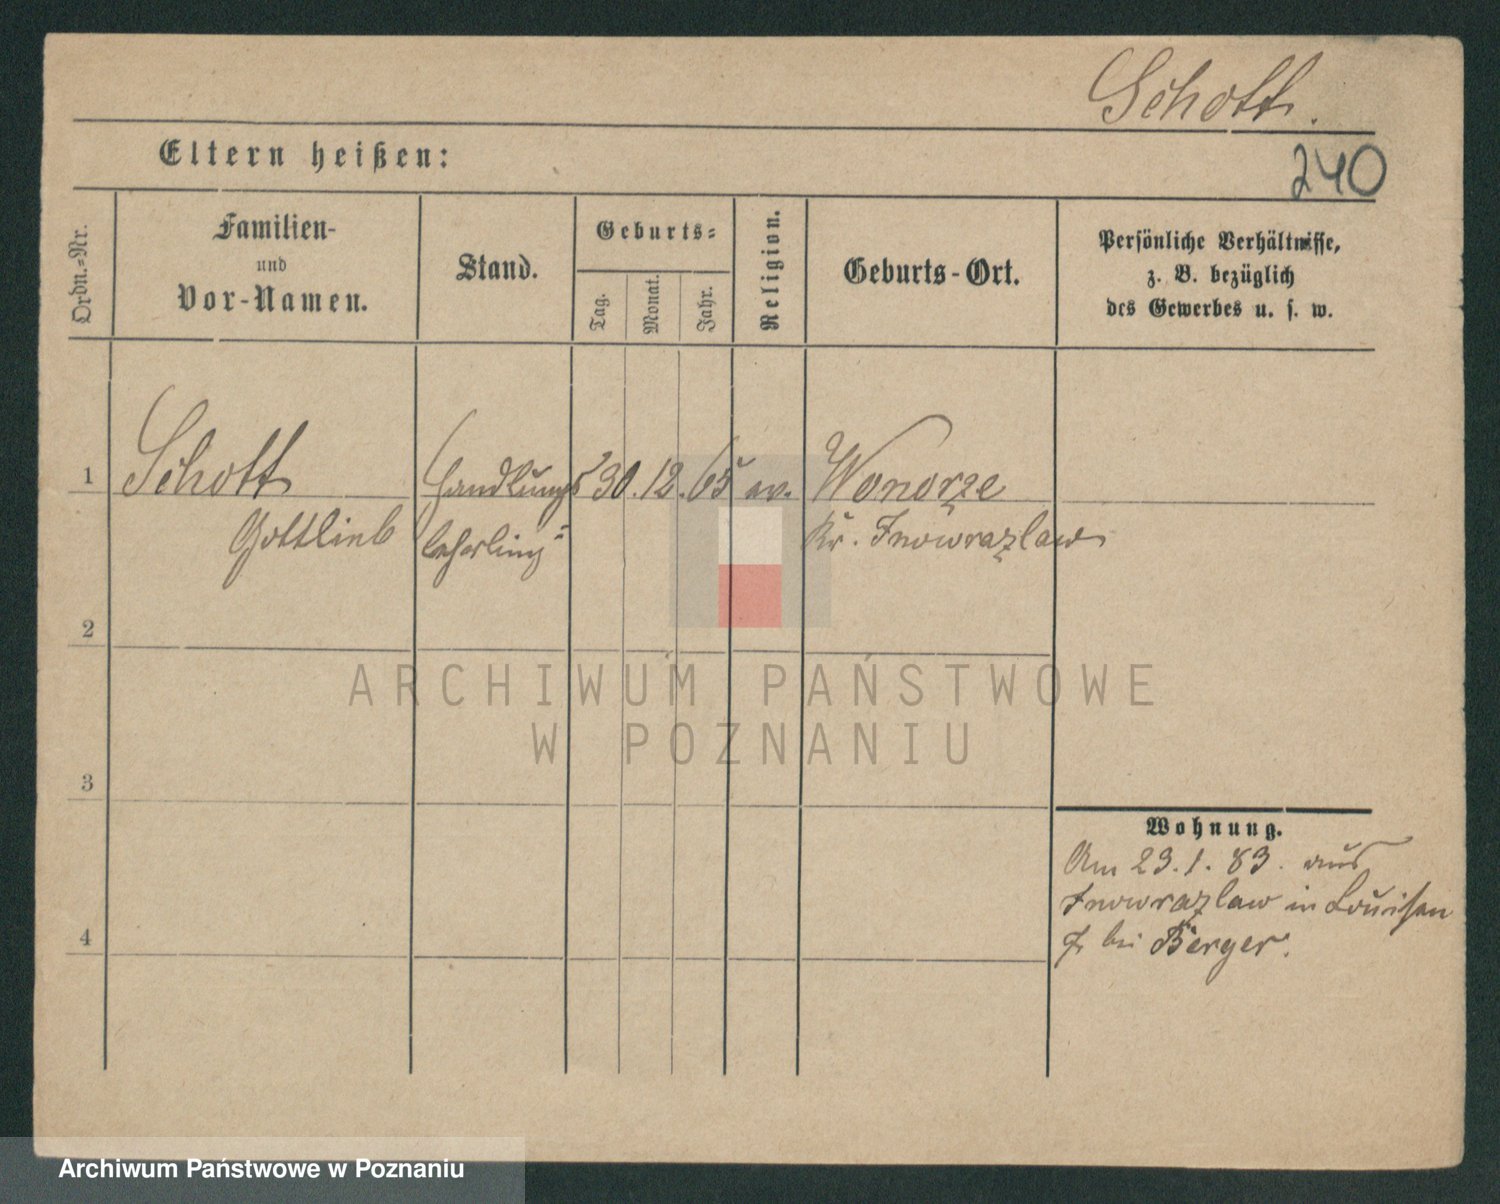 Schott.
Eltern heißen:
240
Ordn.-Nr.
Familien-
und
Vor-Namen.
Stand.
Geburts-
Tag.
Monat.
Jahr.
Religion.
Geburts-Ort.
Persönliche Verhältnisse,
z. B. bezüglich
des Gewerbes u. s. w.
1 Schott Handlungs 30. 12. 65 ev. Wonorze
Gottlieb lehrling Kr. Inowrazlaw
2
3
4
Wohnung.
Am 23. 1. 83. aus
Inowrazlaw in Louisen
bei Berger.
ARCHIWUM PAŃSTWOWE
W POZNANIU
Archiwum Państwowe w Poznaniu